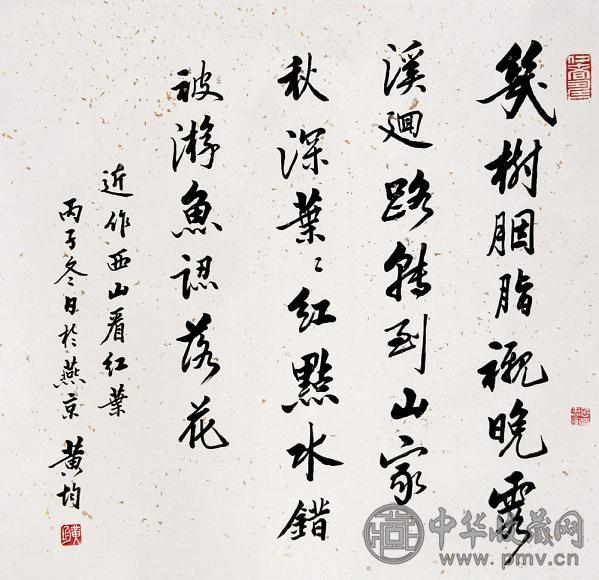 幾樹胭脂襯晚霞
溪迴路轉到山家
秋深葉葉紅點水錯
被游魚認落花
近作西山看紅葉
丙子冬日於燕京 黃均
中华收藏网
www.pmv.cn